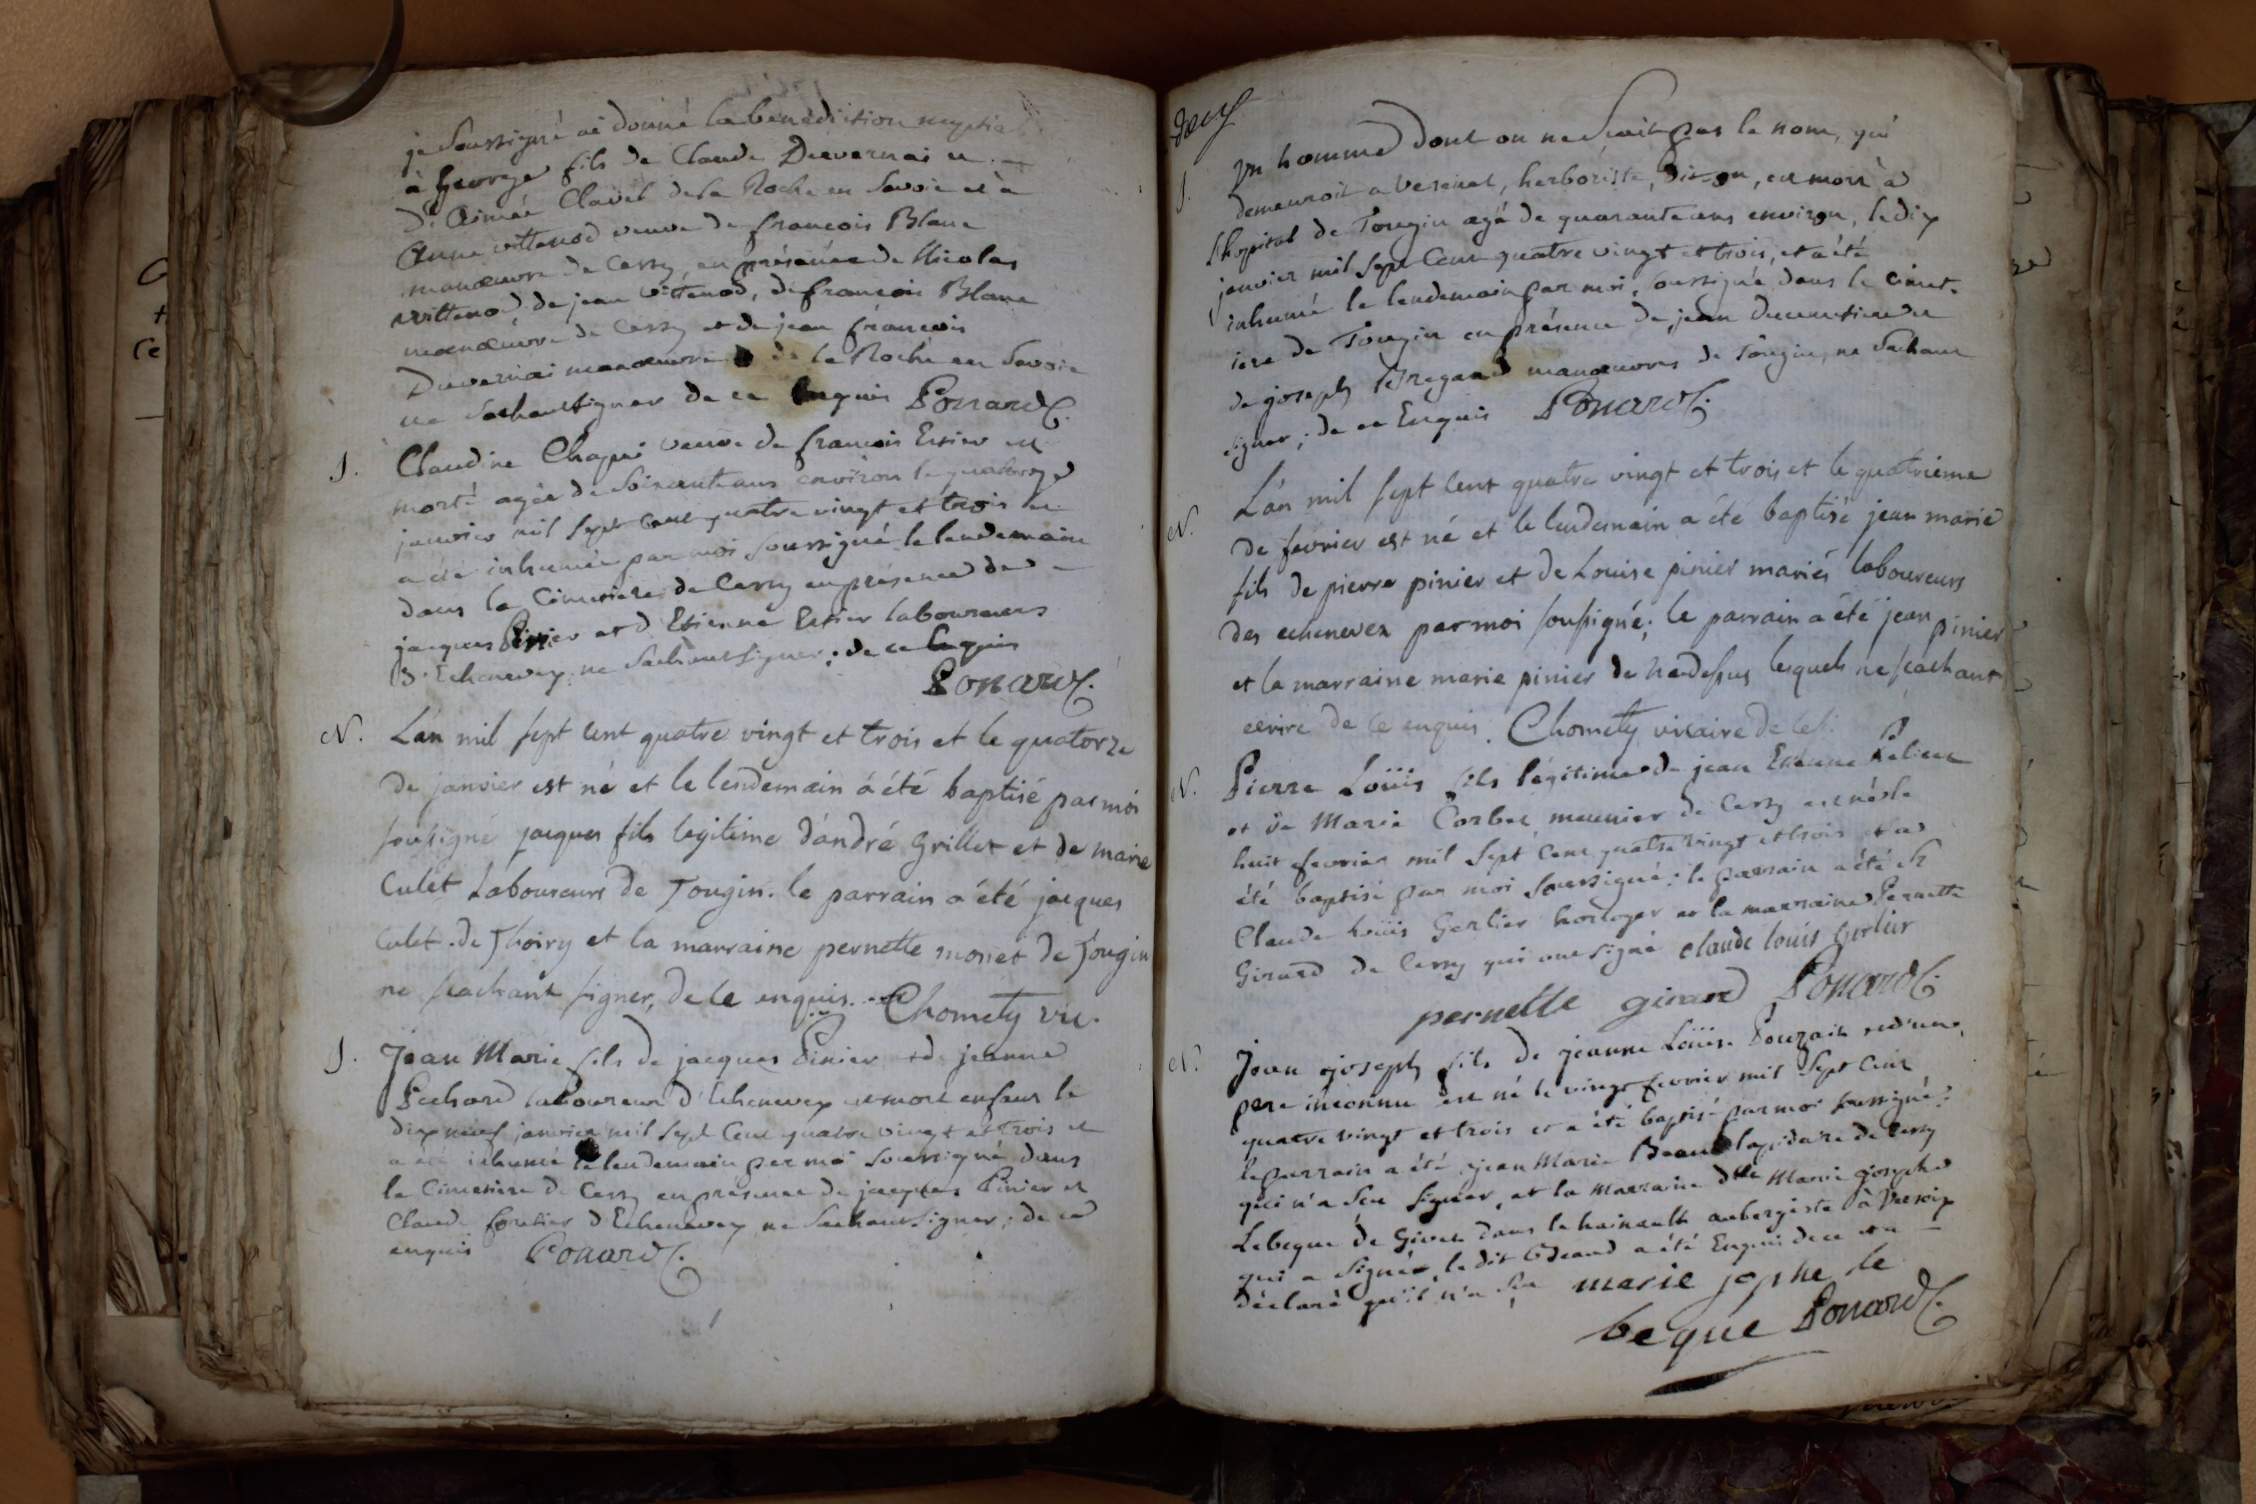 je soussigné ai donné la bénédiction nuptia
à George fils de Claude Duvernai et
d'Aimée Clavel de la Roche en Savoie et à
Anne vittenod veuve de françois Blanc
manœuvre de Cessy, en présence de Nicolas
vittenod de jean vittenod, de françois Blanc
manœuvre de Cessy et de jean françois
Duvernai manœuvre de la Roche en Savoie
ne sachant signer de ce Enquis Ponard C.
J. Claudine Chapui veuve de françois Estier est
morte agée de soixante ans environ le quatorze
janvier mil sept cent quatre vingt et trois et
a été inhumée par moi soussigné le lendemain
dans le Cimetiere de Cessy en présence de
jacques Pinier et d'Etienne Estier laboureurs
d'Echenevey ne sachant signer ; de ce Enquis
Ponard C.
N. L'an mil sept cent quatre vingt et trois et le quatorze
de janvier est né et le lendemain a été baptisé par moi
sousigné jacques fils legitime d'andré Grillet et de marie
Culet Laboureurs de Tougin. le parrain a été jacques
Culet de Thoiry et la marraine pernette monet de Tougin
ne scachant signer, de ce enquis. Chomety vic.
J. Jean Marie fils de jacques Pinier et de jeanne
Pechard laboureur d'Echenevey est mort enfant le
dix neuf janvier mil sept Cent quatre vingt et trois et
a été inhumé le lendemain par moi soussigné dans
le Cimetiere de Cessy en présence de jacques Pinier et
Claude fontier d'Echenevey ne sachant signer ; de ce
enquis Ponard C.
J. Un homme dont on ne scait pas le nom, qui
demeuroit a Vesenet, herboriste, dit-on, est mort à
l'hopital de Tougin agé de quarante ans environ, le dix
janvier mil sept Cent quatre vingt et trois, et a été
inhumé le lendemain par moi, soussigné, dans le cimet-
iere de Tougin en présence de jean et
de joseph Bregand manœuvres de Tougin, ne sachant
signer ; de ce Enquis Ponard C.
N. L'an mil sept cent quatre vingt et trois et le quatrième
de fevrier est né et le lendemain a été baptisé jean marie
fils de pierre pinier et de Louise pinier mariés laboureurs
des echenevex par moi sousigné; le parrain a été jean pinier
et la marraine marie pinier de lesquels ne scachant
ecrire de ce enquis. Chomety vicaire de
N. Pierre Loüis fils légitime de jean Etienne
et de Marie Corbet meunier de Cessy est né le
huit fevrier mil sept Cent quatre vingt et trois et a
été baptisé par moi soussigné : le parrain a été
Claude Loüis Gerlier horloger et la marraine Pernette
Girard de Cessy qui ont signé claude louis Gerlier
pernette girard Ponard C.
N. Jean joseph fils de jeanne Loüise et d'un
pere inconnu est né le vingt fevrier mil sept Cent
quatre vingt et trois et a été baptisé par moi soussigné :
le parrain a été jean Marie Beaud lapidaire de Cessy
qui n'a scu signer, et la marraine dlle Marie josephe
Lebeque de Givet dans le hainault aubergiste à Versoix
qui a signé, le dit Beaud a été Enquis de ce et a
déclaré qu'il n'a scu marie jophe le
beque Ponard C.